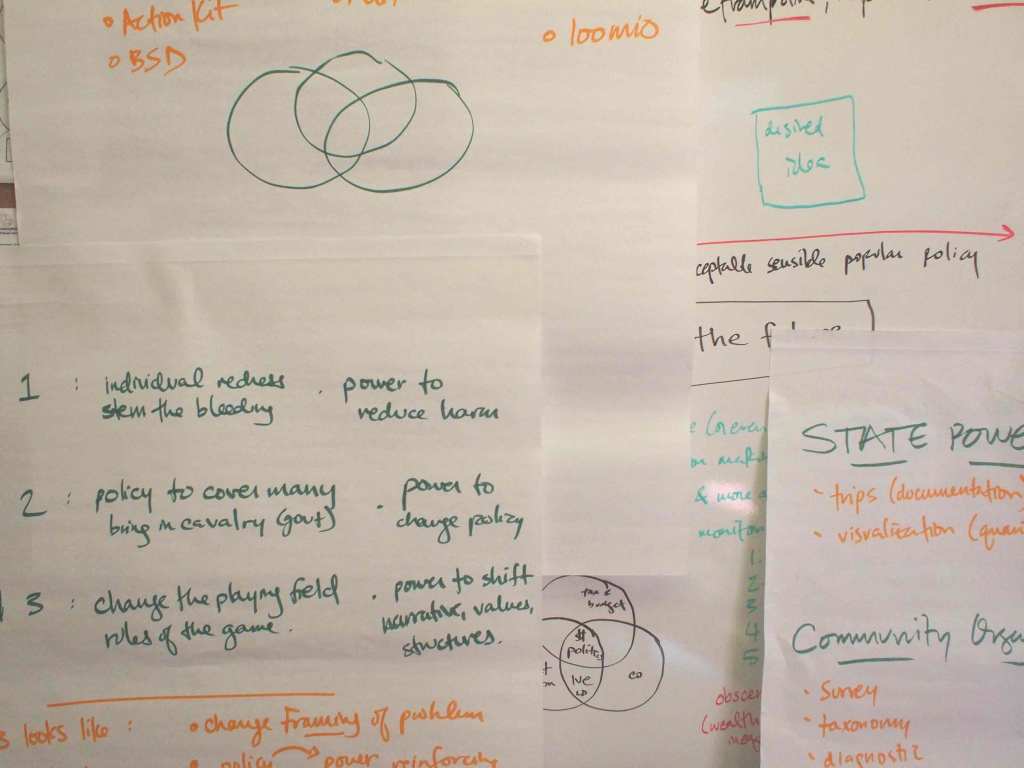 • Action Kit
• BSD
• loomio
desired
idea
ceptable sensible popular policy
the
1 : individual redress . power to
stem the bleeding reduce harm
2 : policy to cover many . power to
bring in cavalry (govt) change policy
3 : change the playing field . power to shift
rules of the game. narrative, values,
structures.
s looks like : • change framing of problem
• policy power reinforcing
& more
monitor
1.
2
3
4
5
obscen
(wealth
tax &
budget
$
politics
co
STATE POWE
· trips (documentation)
· visualization (quan
Community Orga
· Survey
· taxonomy
· diagnostic